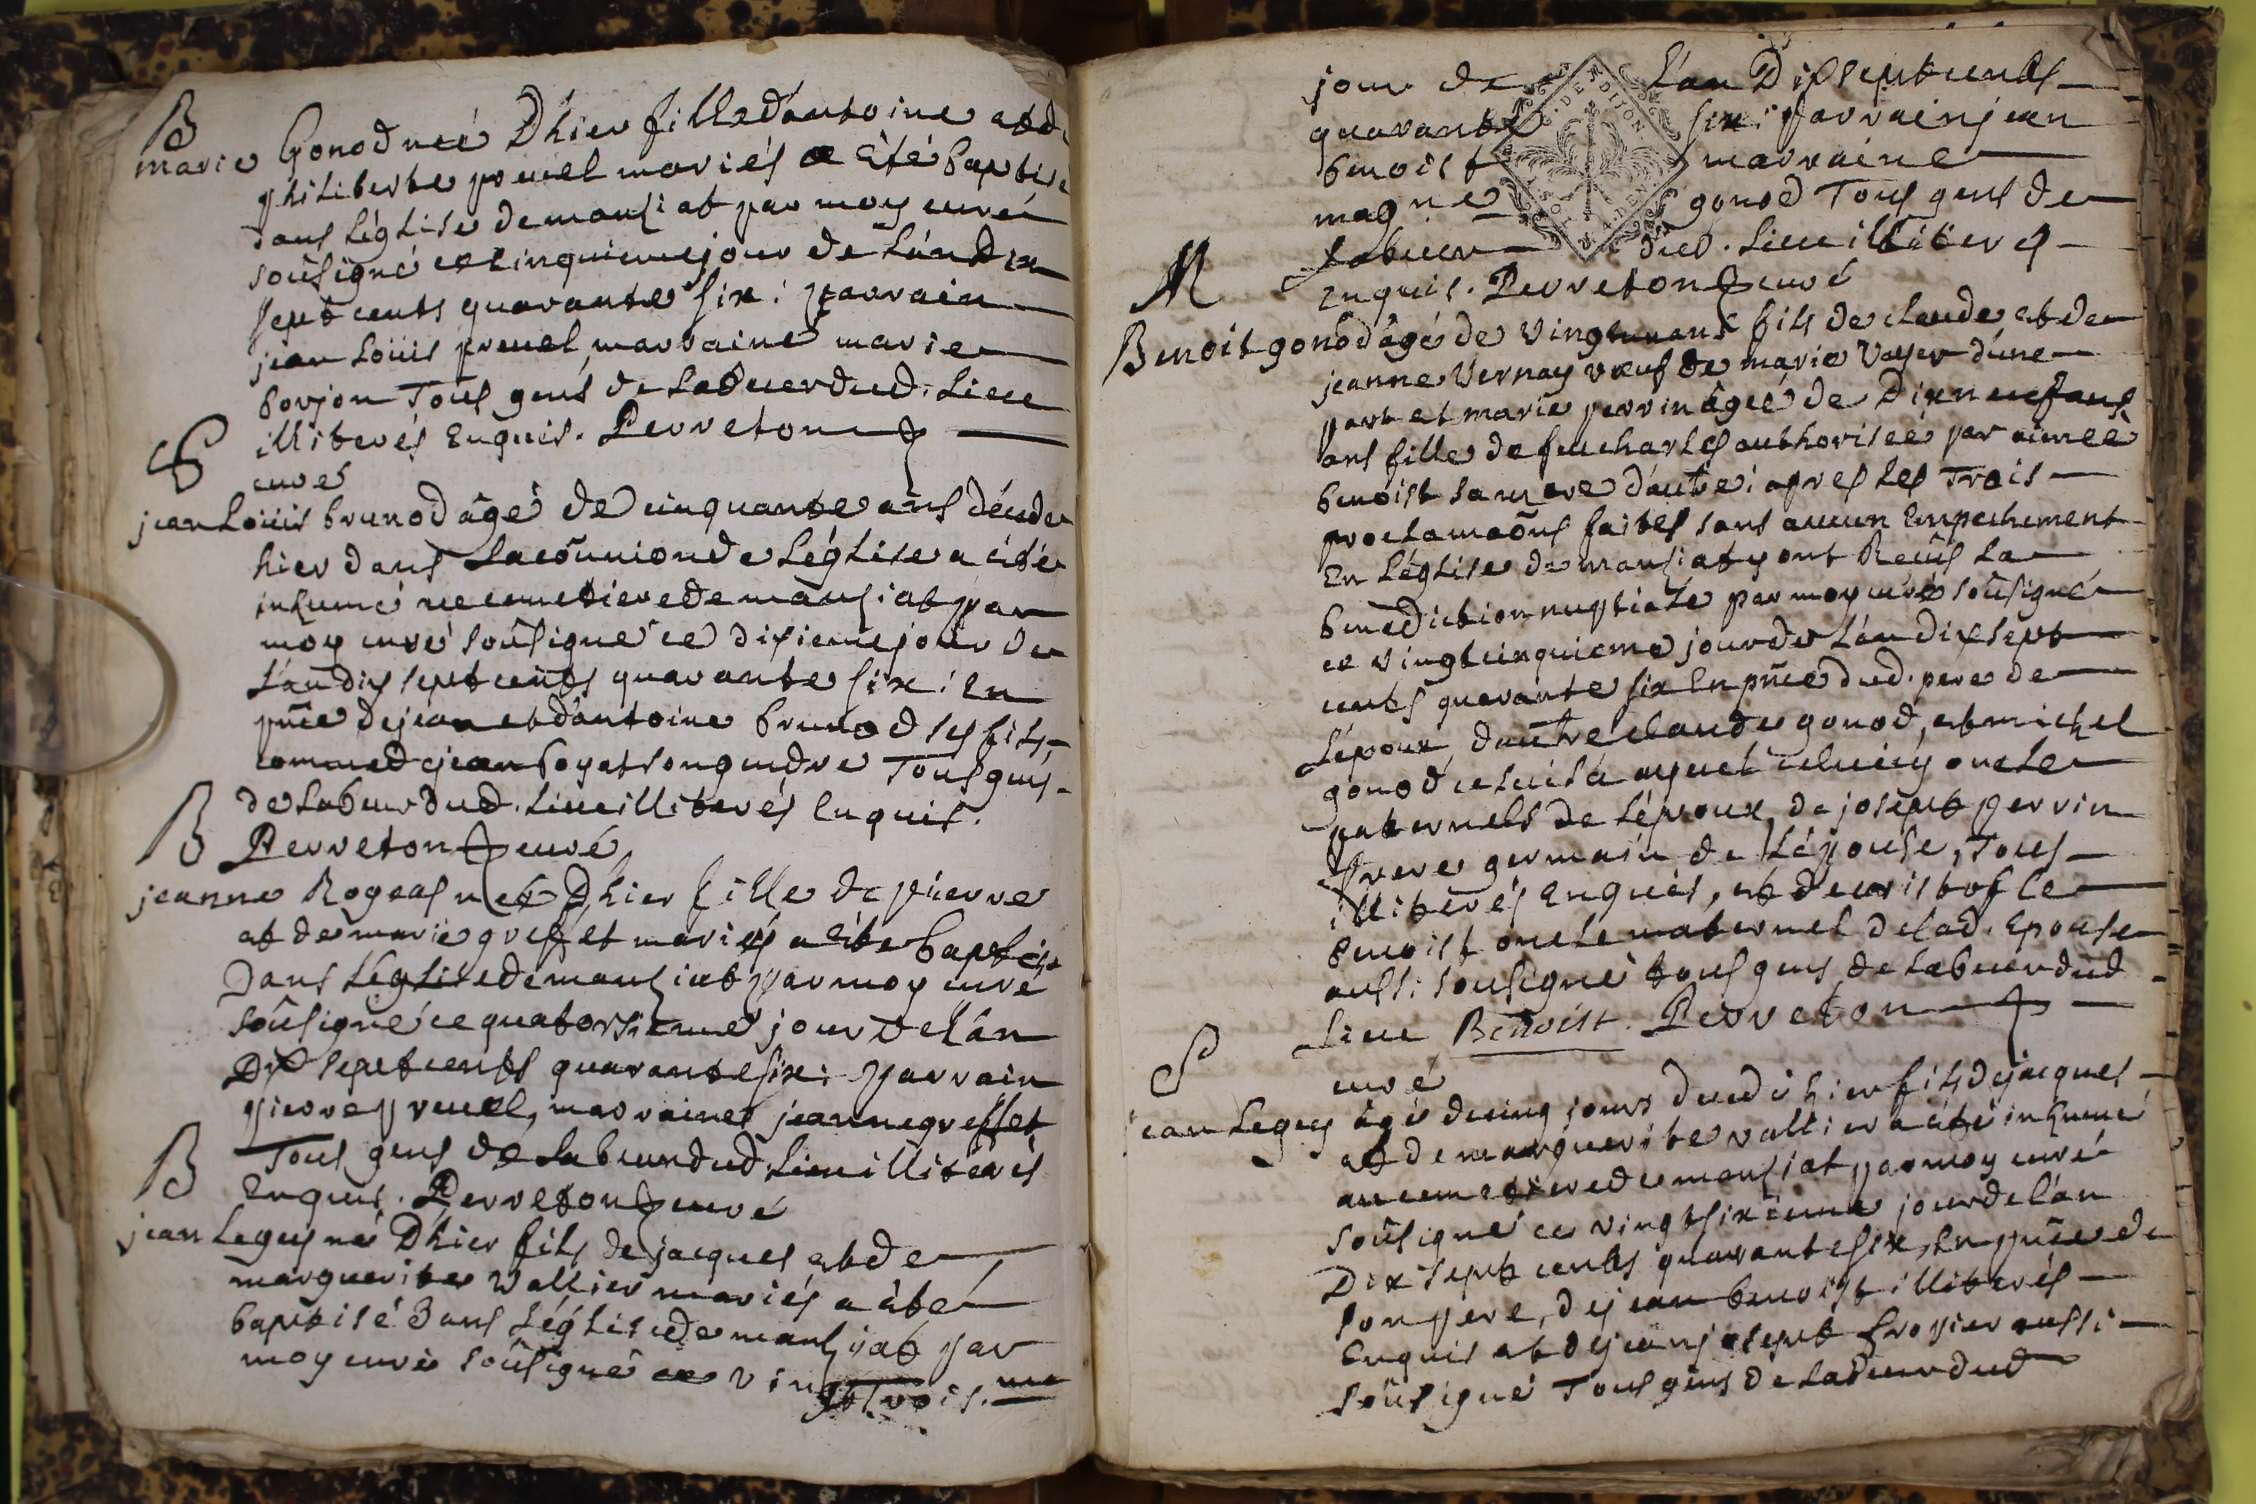 B
marie Gonod neé Dhier fille d'antoine et de
philiberte preuel mariés a été baptisé
dans l'églisé de mansiat par moy curé
soûsigné ce cinquieme jour de l'an Dix
sept cents quarante six : parrain
jean Loüis preuel, marraine marie
borjon Tous gens de Labeur dud. Lieu
illiterés Enquis. Perreton
curé
S
jean Loüis brunod âgé de cinquante ans décédé
hier dans La coũnion de L'église a été
inhumé au cimetiere de mansiat par
moy curé soûsigné ce dixieme jour de
L'an dix sept cents quarante six : En
pñce de jean et d'antoine brunod ses fils
comme de jean boyat son gendre Tous gens
de Labeur dud. Lieu illiterés Enquis.
Perreton curé
B
jeanne Rogeas neé Dhier fille de pierre
et de marie greffet mariés a été baptisé
Dans L'église de mansiat par moy curé
soûsigné ce quatorsieme jour de l'an
Dix sept cents quarante six : parrain
pierre preuel, marraine jeanne greffet
Tous gens de Labeur dud. Lieu illiterés
Enquis. Perreton curé
B
jean Leguy né Dhier fils de jacques et de
marguerite Vallier mariés a été
baptisé Dans L'églisé de mansiat par
moy curé soûsigné ce vingt trois.me
jour de L'an Dix sept cents
quarante six : parrain jean
benoist marraine
gonod Tous gens de
Labeur dud. Lieu illiterés
Enquis. Perreton curé
G. DE. DIJON
M
Benoit gonod âgé de vingt ans fils de claude et de
jeanne Vernay vœuf de marie Voyer d'une
part et marie perrin âgeé de Dix neuf ans
ans fille de feu charles authoriseé par aimeé
benoist sa mere d'autre : apres Les Trois
proclamaõns faites sans aucun Empechement
En L'églisé de mansiat y ont Receüs La
benediction nuptiale par moy curé soûsigné
ce vingt cinquieme jour de L'an dix sept
cents quarante six En pñce dud. pere de
L'époux d'autre claude gonod, et michel
gonod oncle
paternels de L'époux, de joseph perrin
frere germain de L'épouse, Tous
illiterés Enquis, et de cristofle
Benoist oncle maternel de lad. Epouse
aussi sousigné tous gens de Labeur dud
Lieu Benoist. Perreton
curé
S
jean Leguy âgé de cinq jours decedé hier fils de jacques
et de marguerite vallier a été inhumé
au cimetiere de mansiat par moy curé
soûsigné ce vingt sixieme jour de l'an
Dix sept cents quarante six, En pñce de
son pere, de jean benoist illiterés
Enquis et de jean joseph aussi
soûsigné Tous gens de Labeur dud